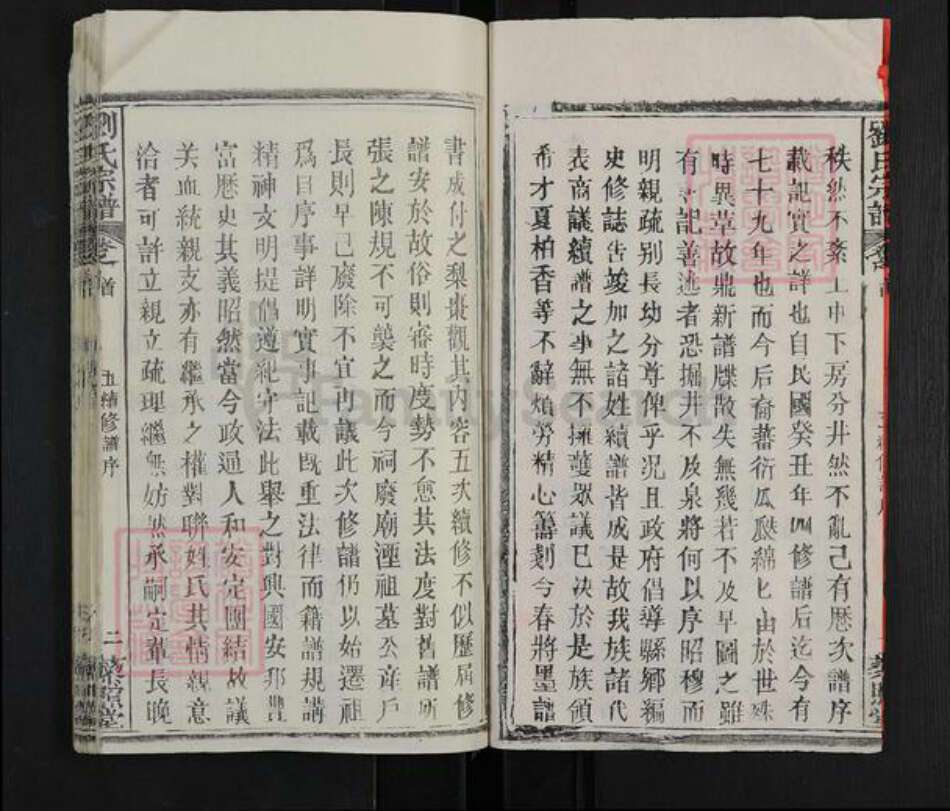 劉氏宗譜
秩然不紊上中下房分井然不亂已有歷次譜序
載記實之詳也自民國癸丑年四修譜后迄今有
七十九年也而今后裔蕃衍瓜瓞綿匕由於世殊
時異草故鼎新譜牒散失無幾若不及早圖之雖
有 記善述者恐掘井不及泉將何以序昭穆而
明親疏别長幼分尊俾乎况且政府倡導縣鄉編
史修誌告竣加之諸姓續譜皆成是故我族諸代
表商議續譜之事無不擁護眾議已决於是族領
希才夏柏香等不辭煩勞精心籌划今春將墨譜
書成付之梨棗觀其内容五次續修不似歷屆修
譜安於故俗則審時度勢不愈其法度對舊譜所
張之陳規不可襲之而今祠廢廟湮祖墓公產戶
長則早已廢除不宜再議此次修譜仍以始遷祖
爲目序事詳明實事記載既重法律而籍譜規講
精神文明提倡遵紀守法此舉之對興國安邦豊
富歷史其義昭然當今政通人和安定團結故議
关血統親支亦有繼承之權對聯姓氏其情親意
洽者可許立親立疏理繼無妨然承嗣定輩長晚
劉氏宗譜
卷首
五續修譜序
二
FamilySearch